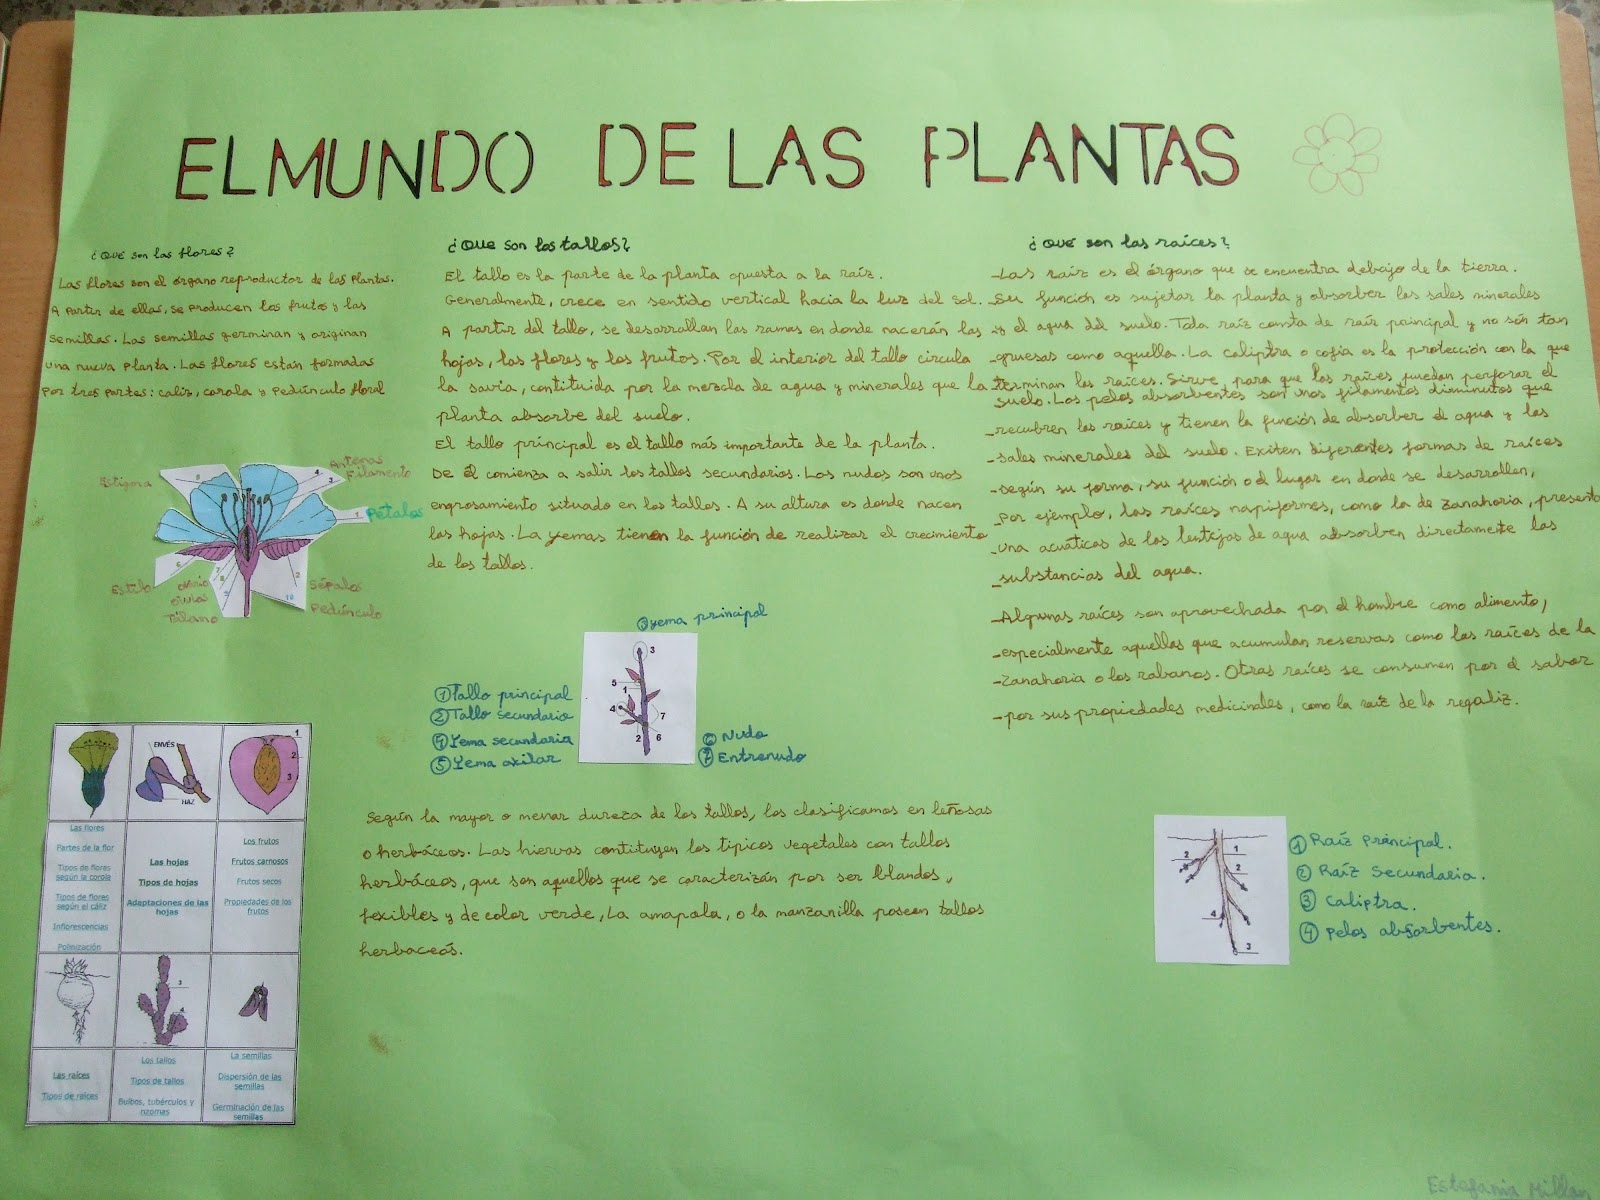 EL MUNDO DE LAS PLANTAS
¿QUÉ son las flores?
Las flores son el órgano reproductor de las Plantas.
A Partir de ellas, se Producen los frutos y las
semillas. Las semillas germinan y originan
una nueva Planta. Las flores están formadas
Por tres Partes: caliz, corola y Pedúnculo floral
Estigma
Antenas
Filamento
Pétalos
Estilo
ovario
óvulos
Tálamo
Sépalos
Pedúnculo
5
4
3
1
6
7
8
9
2
10
ENVÉS
HAZ
1
2
3
Las flores
Partes de la flor
Tipos de flores
según la corola
Tipos de flores
según el cáliz
Inflorescencias
Polinización
Las hojas
Tipos de hojas
Adaptaciones de las
hojas
Los frutos
Frutos carnosos
Frutos secos
Propiedades de los
frutos
3
4
Las raíces
Tipos de raíces
Los tallos
Tipos de tallos
Bulbos, tubérculos y
rizomas
La semillas
Dispersión de las
semillas
Germinación de las
semillas
¿QUE son los tallos?
El tallo es la parte de la planta opuesta a la raíz.
Generalmente, crece en sentido vertical hacia la luz del sol.
A partir del tallo, se desarrollan las ramas en donde nacerán las
hojas, las flores y los frutos. Por el interior del tallo circula
la savia, contituida por la mezcla de agua y minerales que la
planta absorbe del suelo.
El tallo principal es el tallo más importante de la planta.
De él comienza a salir los tallos secundarios. Los nudos son unos
engrosamiento situado en los tallos. A su altura es donde nacen
las hojas. La yemas tienen la función de realizar el crecimiento
de los tallos.
③ yema principal
① Tallo principal
② Tallo secundario
④ Yema secundaria
⑤ Yema axilar
3
5
1
4
7
2
6
⑥ Nudo
⑦ Entrenudo
Según la mayor o menor dureza de los tallos, los clasificamos en leñosas
o herbáceos. Las hiervas contituyen los tipicos vegetales con tallos
herbáceos, que son aquellos que se caracterizán por ser blandos,
fexibles y de color verde, La amapola, o la manzanilla poseen tallos
herbaceós.
¿Qué son las raíces?
-Las raíz es el órgano que se encuentra debajo de la tierra.
-Su función es sujetar la planta y absorber las sales minerales
-y el agua del suelo. Toda raíz consta de raíz paincipal y no són tan
-gruesas como aquella. La caliptra o cofia es la protección con la que
-terminan las raíces. Sirve, para que las raíces puedan perforar el
suelo. Los pelos absorbentes son unos filamentos diminutos que
-recubren las raíces y tienen la función de absorber el agua y las
-sales minerales del suelo. Exiten diferentes formas de raíces
-según su forma, su función o el lugar en donde se desarrollen,
-Por ejemplo, las raíces napiformes, como la de Zanahoria, presenta
-una acuáticas de las lentejas de agua absorben directamente las
-substancias del agua.
-Algunas raíces son aprovechada por el hombre como alimento,
-especialmente aquellas que acumulan reservas como las raíces de la
-Zanahoria o los rabanos. Otras raíces se consumen por el sabor
-por sus propiedades medicinales, como la raíz de la regaliz.
2
1
2
4
3
① Raíz Principal.
② Raíz Secundaria.
③ Caliptra.
④ Pelos absorbentes.
Estefania Millan